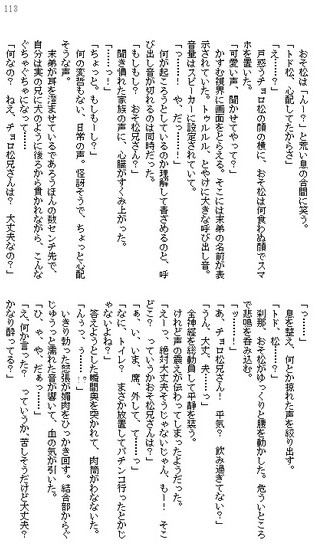 113
　おそ松は「んー？」と荒い息の合間に笑う。
「トド松、心配してたからさ」
「え……」
　戸惑うチョロ松の顔の横に、おそ松は何食わぬ顔でスマ
ホを置いた。
「可愛い声、聞かせてやって？」
　かすむ視界に画面をとらえる。そこには末弟の名前が表
示されていた。トゥルルル、とやけに大きな呼び出し音。
音量はスピーカーに設定されていて。
「っ……！　や、だっ……！」
　何が起ころうとしているのか理解して青ざめるのと、呼
び出し音が切れるのは同時だった。
『もしもし？　おそ松兄さん？』
　聞き慣れた家族の声に、心臓がすくみ上がった。
「……っ！」
『ちょっと。もしもーし？』
　何の変哲もない、日常の声。怪訝そうで、ちょっと心配
そうな声。
　末弟が耳を澄ませているであろうほんの数センチ先で、
自分は実の兄に犬のように後ろから貫かれながら、こんな
ぐちゃぐちゃになって……。
『何なの？　ねえ、チョロ松兄さんは？　大丈夫なの？』
「っ……」
　息を整え、何とか掠れた声を絞り出す。
「トド、松……？」
　刹那、おそ松がゆっくりと腰を動かした。危ういところ
で悲鳴を呑み込む。
「ッ……！」
『あ、チョロ松兄さん！　平気？　飲み過ぎてない？』
「うん、大丈、夫……っ」
　全神経を総動員して平静を装う。
　けれど声の震えが伝わってしまったようだった。
『えーっ。絶対大丈夫そうじゃないじゃん。もー！　そこ
どこ？　っていうかおそ松兄さんは？』
「ぁ、い、いま、席、外して、て……っ」
『なに、トイレ？　まさか放置してパチンコ行ったとかじ
ゃないよね？』
　答えようとした瞬間奥を突かれて、肉筒がわなないた。
「んぅっ、う……！」
　いきり勃った怒張が媚肉をひっかき回す。結合部からぐ
じゅうっと濡れた音が響いて、血の気が引いた。
「ひ、ゃ、や、だぁっ……！」
『え、何か言った？　っていうか、苦しそうだけど大丈夫？
かなり酔ってる？』